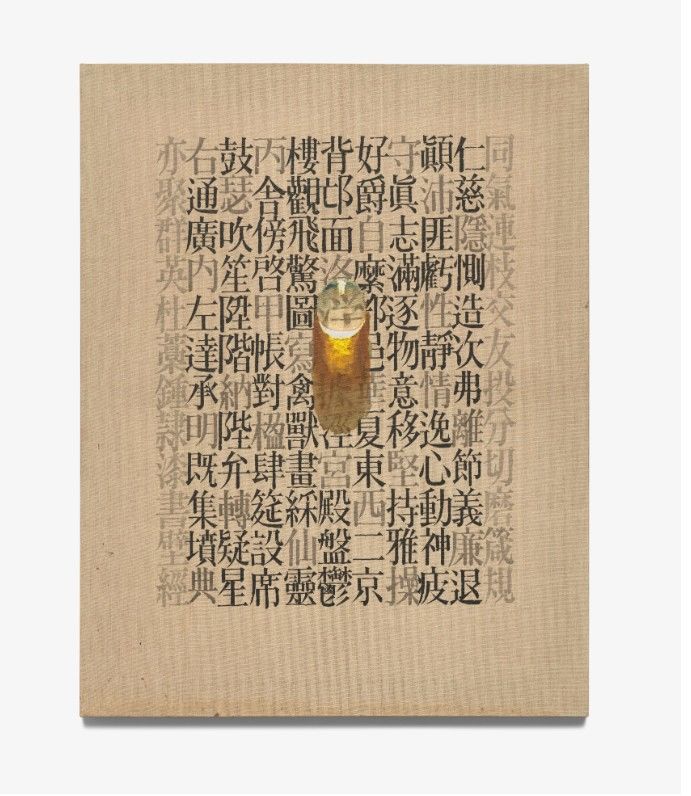 同氣連枝交友投分切磨箴規
仁慈隱惻造次弗離節義廉退
顚沛匪虧性靜情逸心動神疲
守眞志滿逐物意移堅持雅操
好爵自縻都邑華夏東西二京
背邙面洛浮據涇宮殿盤鬱
樓觀飛驚圖寫禽獸畫綵仙靈
丙舍傍啓甲帳對楹肆筵設席
鼓瑟吹笙陞階納陛弁轉疑星
右通廣内左達承明既集墳典
亦聚群英杜藁鍾隷漆書壁經